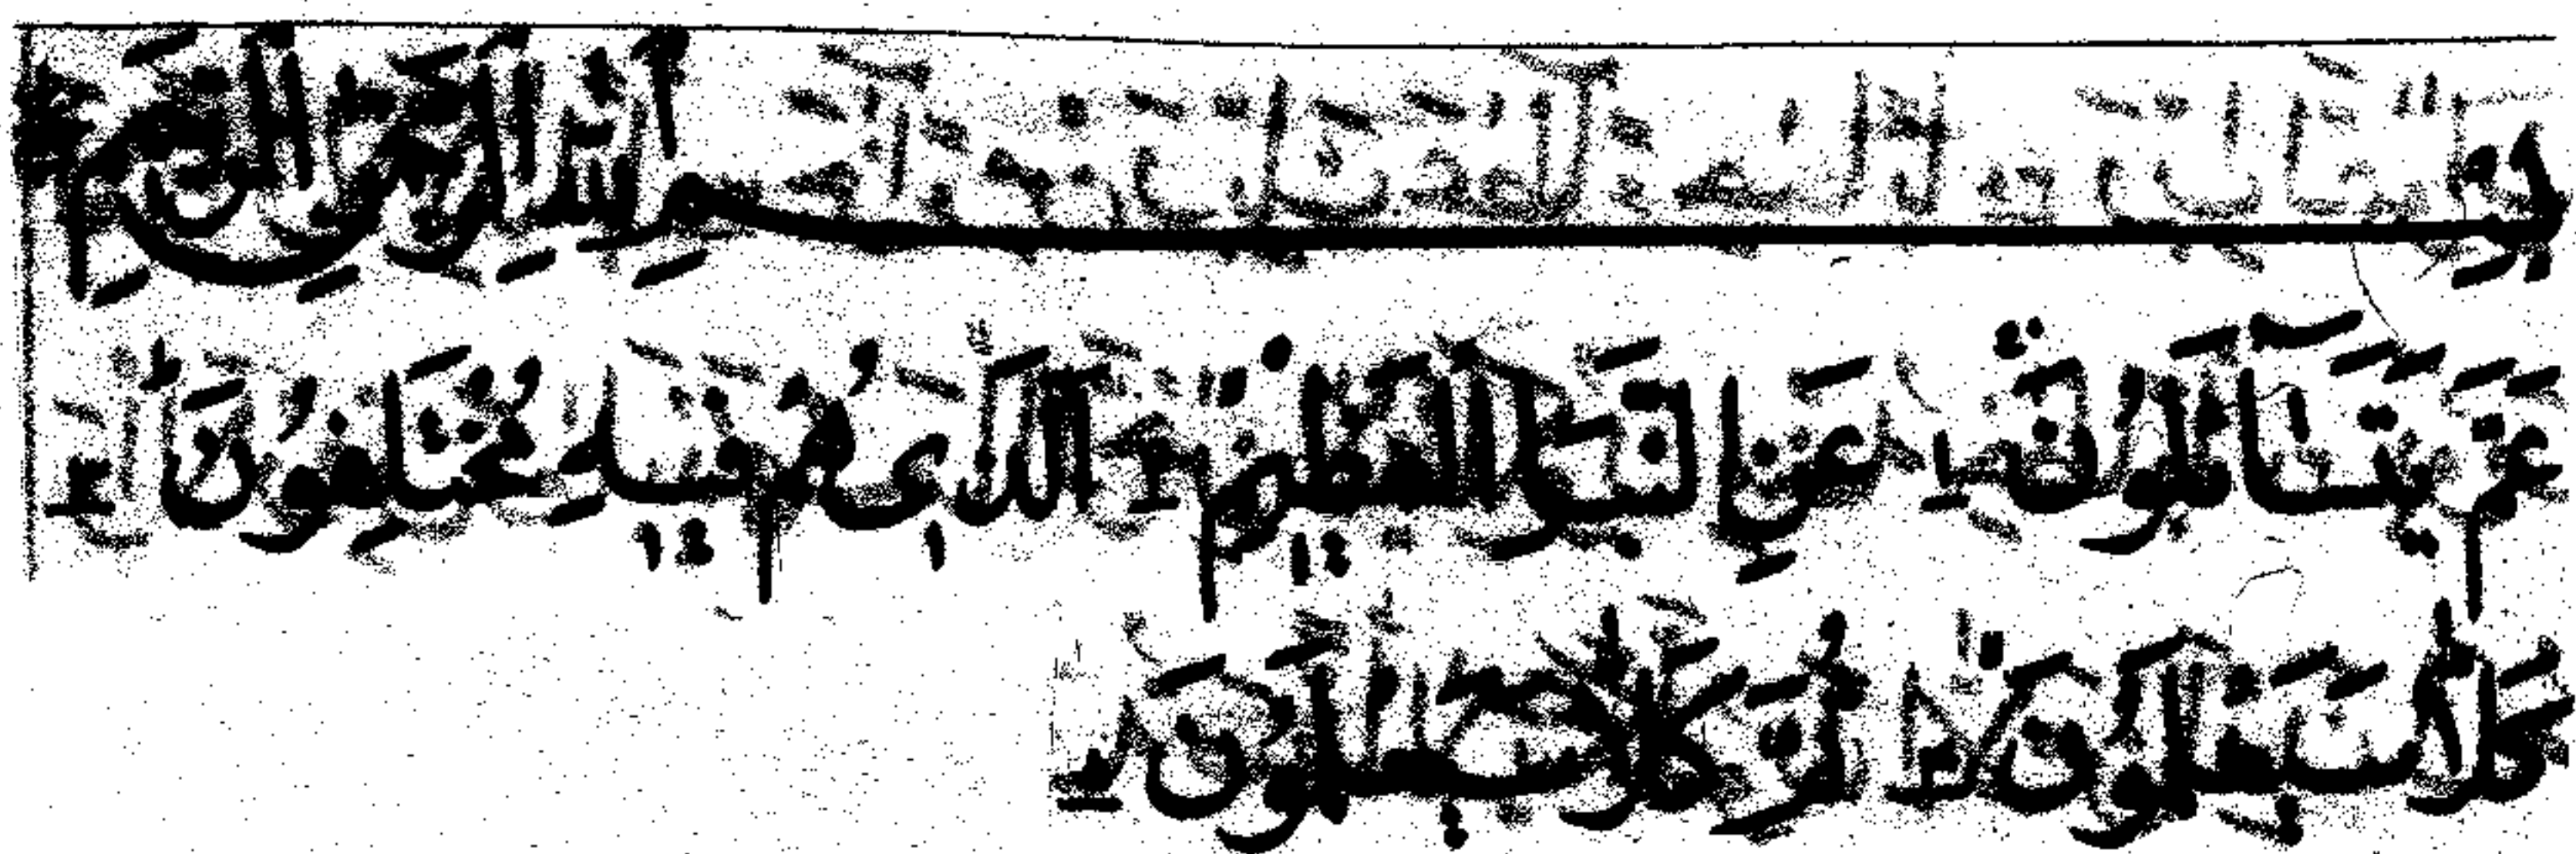 بِسْمِ اللهِ الرَّحْمٰنِ الرَّحِيْمِ
عَمَّ يَتَسَآءَلُوْنَ عَنِ النَّبَإِ الْعَظِيْمِ الَّذِىْ هُمْ فِيْهِ مُخْتَلِفُوْنَ
كَلَّا سَيَعْلَمُوْنَ ثُمَّ كَلَّا سَيَعْلَمُوْنَ